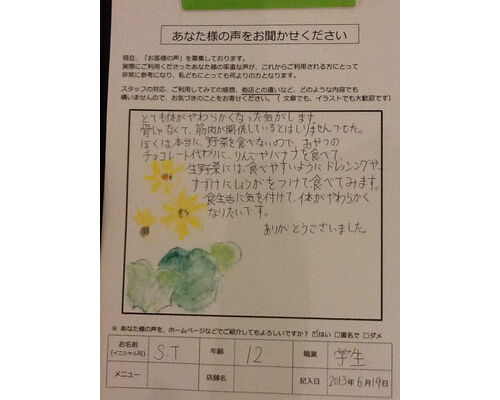 あなた様の声をお聞かせください
現在、「お客様の声」を募集しております。
実際にご利用くださったあなた様の率直な声が、これからご利用される方にとって
非常に参考になり、私どもにとっても何よりの力となります。
スタッフの対応、ご利用してみての感想、他店との違いなど、どのような内容でも
構いませんので、お気づきのことをお寄せください。（ 文章でも、イラストでも大歓迎です）
とても体がやわらかくなった気がします。
骨じゃなくて、筋肉が関係しているとはしりませんでした。
ぼくは本当に野菜を食べないので、おやつの
チョコレート代わりに、りんごやバナナを食べて、
生野菜には、食べやすいようにドレッシングや、
すずけにしょうがをつけて食べてみます。
食生活に気を付けて、体がやわらかく
なりたいです。
ありがとうございました。
※ あなた様の声を、ホームページなどでご紹介してもよろしいですか？ ☑はい □匿名で □ダメ
お名前 (イニシャル可) S.T 年齢 12 職業 学生
メニュー 店舗名 記入日 2013年6月19日